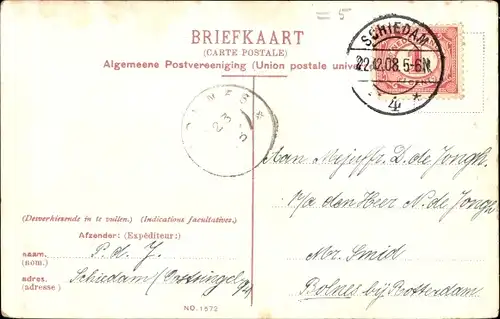 = 5
BRIEFKAART
(CARTE POSTALE)
Algemeene Postvereeniging (Union postale unive
SCHIEDAM
22.12.08.5-6N
* 4 *
5
BOLNES
Aan Mejuffr. D. de Jongh.
p/a den Heer N. de Jongh
Mr. Smid
Bolnes bij Rotterdam
(Desverkiezende in te vullen.) (Indications facultatives.)
Afzender: (Expéditeur:)
naam. P. d. J.
(nom.)
adres. Schiedam (Oostsingel
(adresse)
NO. 1572